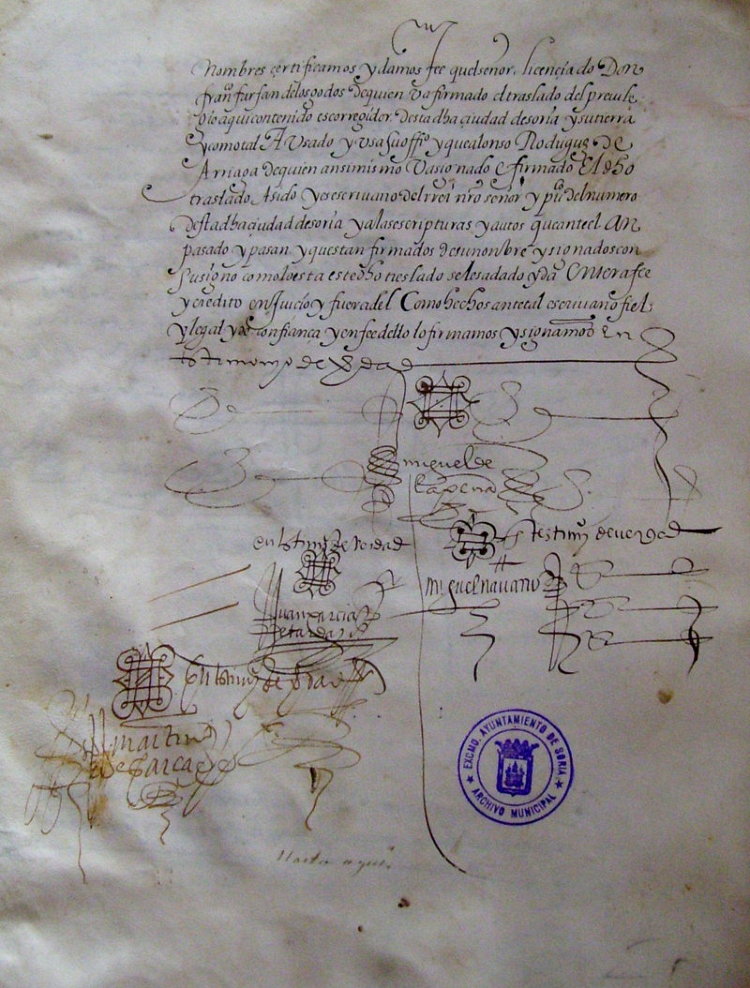 Nombres certificamos y damos fee quel señor. licençiado Don
fran.co farfan delosgodos dequien va firmado eltraslado del previle
gio aqui contenido es corregidor destadha çiudad desoria y sutierra
y comotal A Usado y Usa suoffi.o y que alonso Rodriguez De
Arriaga dequien ansimismo Va sionado e firmado El dho
traslado. Asido y es escrivano del rrei nro señor y pu.co del numero
destadhaçiudad desoria y alas escripturas y autos que anteel An
pasado y pasan y questan firmados desunonbre y sionadoscon
Susigno como lo esta estedho treslado seles adado y da Enterafee
y credito en Juiçio y fueradel Como hechos antetal escrivano fiel
y legal y de confiança y enfeedello lo firmamos y signamos En
testimonyo de verdad
miguel de
la peña
en testim.o de verdad
testim.o de verdad
miguel navarro
Juan garcia
de tardajos
En testim.o de verdad
martin
de garcaes
EXCMO. AYUNTAMIENTO DE SORIA
ARCHIVO MUNICIPAL
Hasta aqui